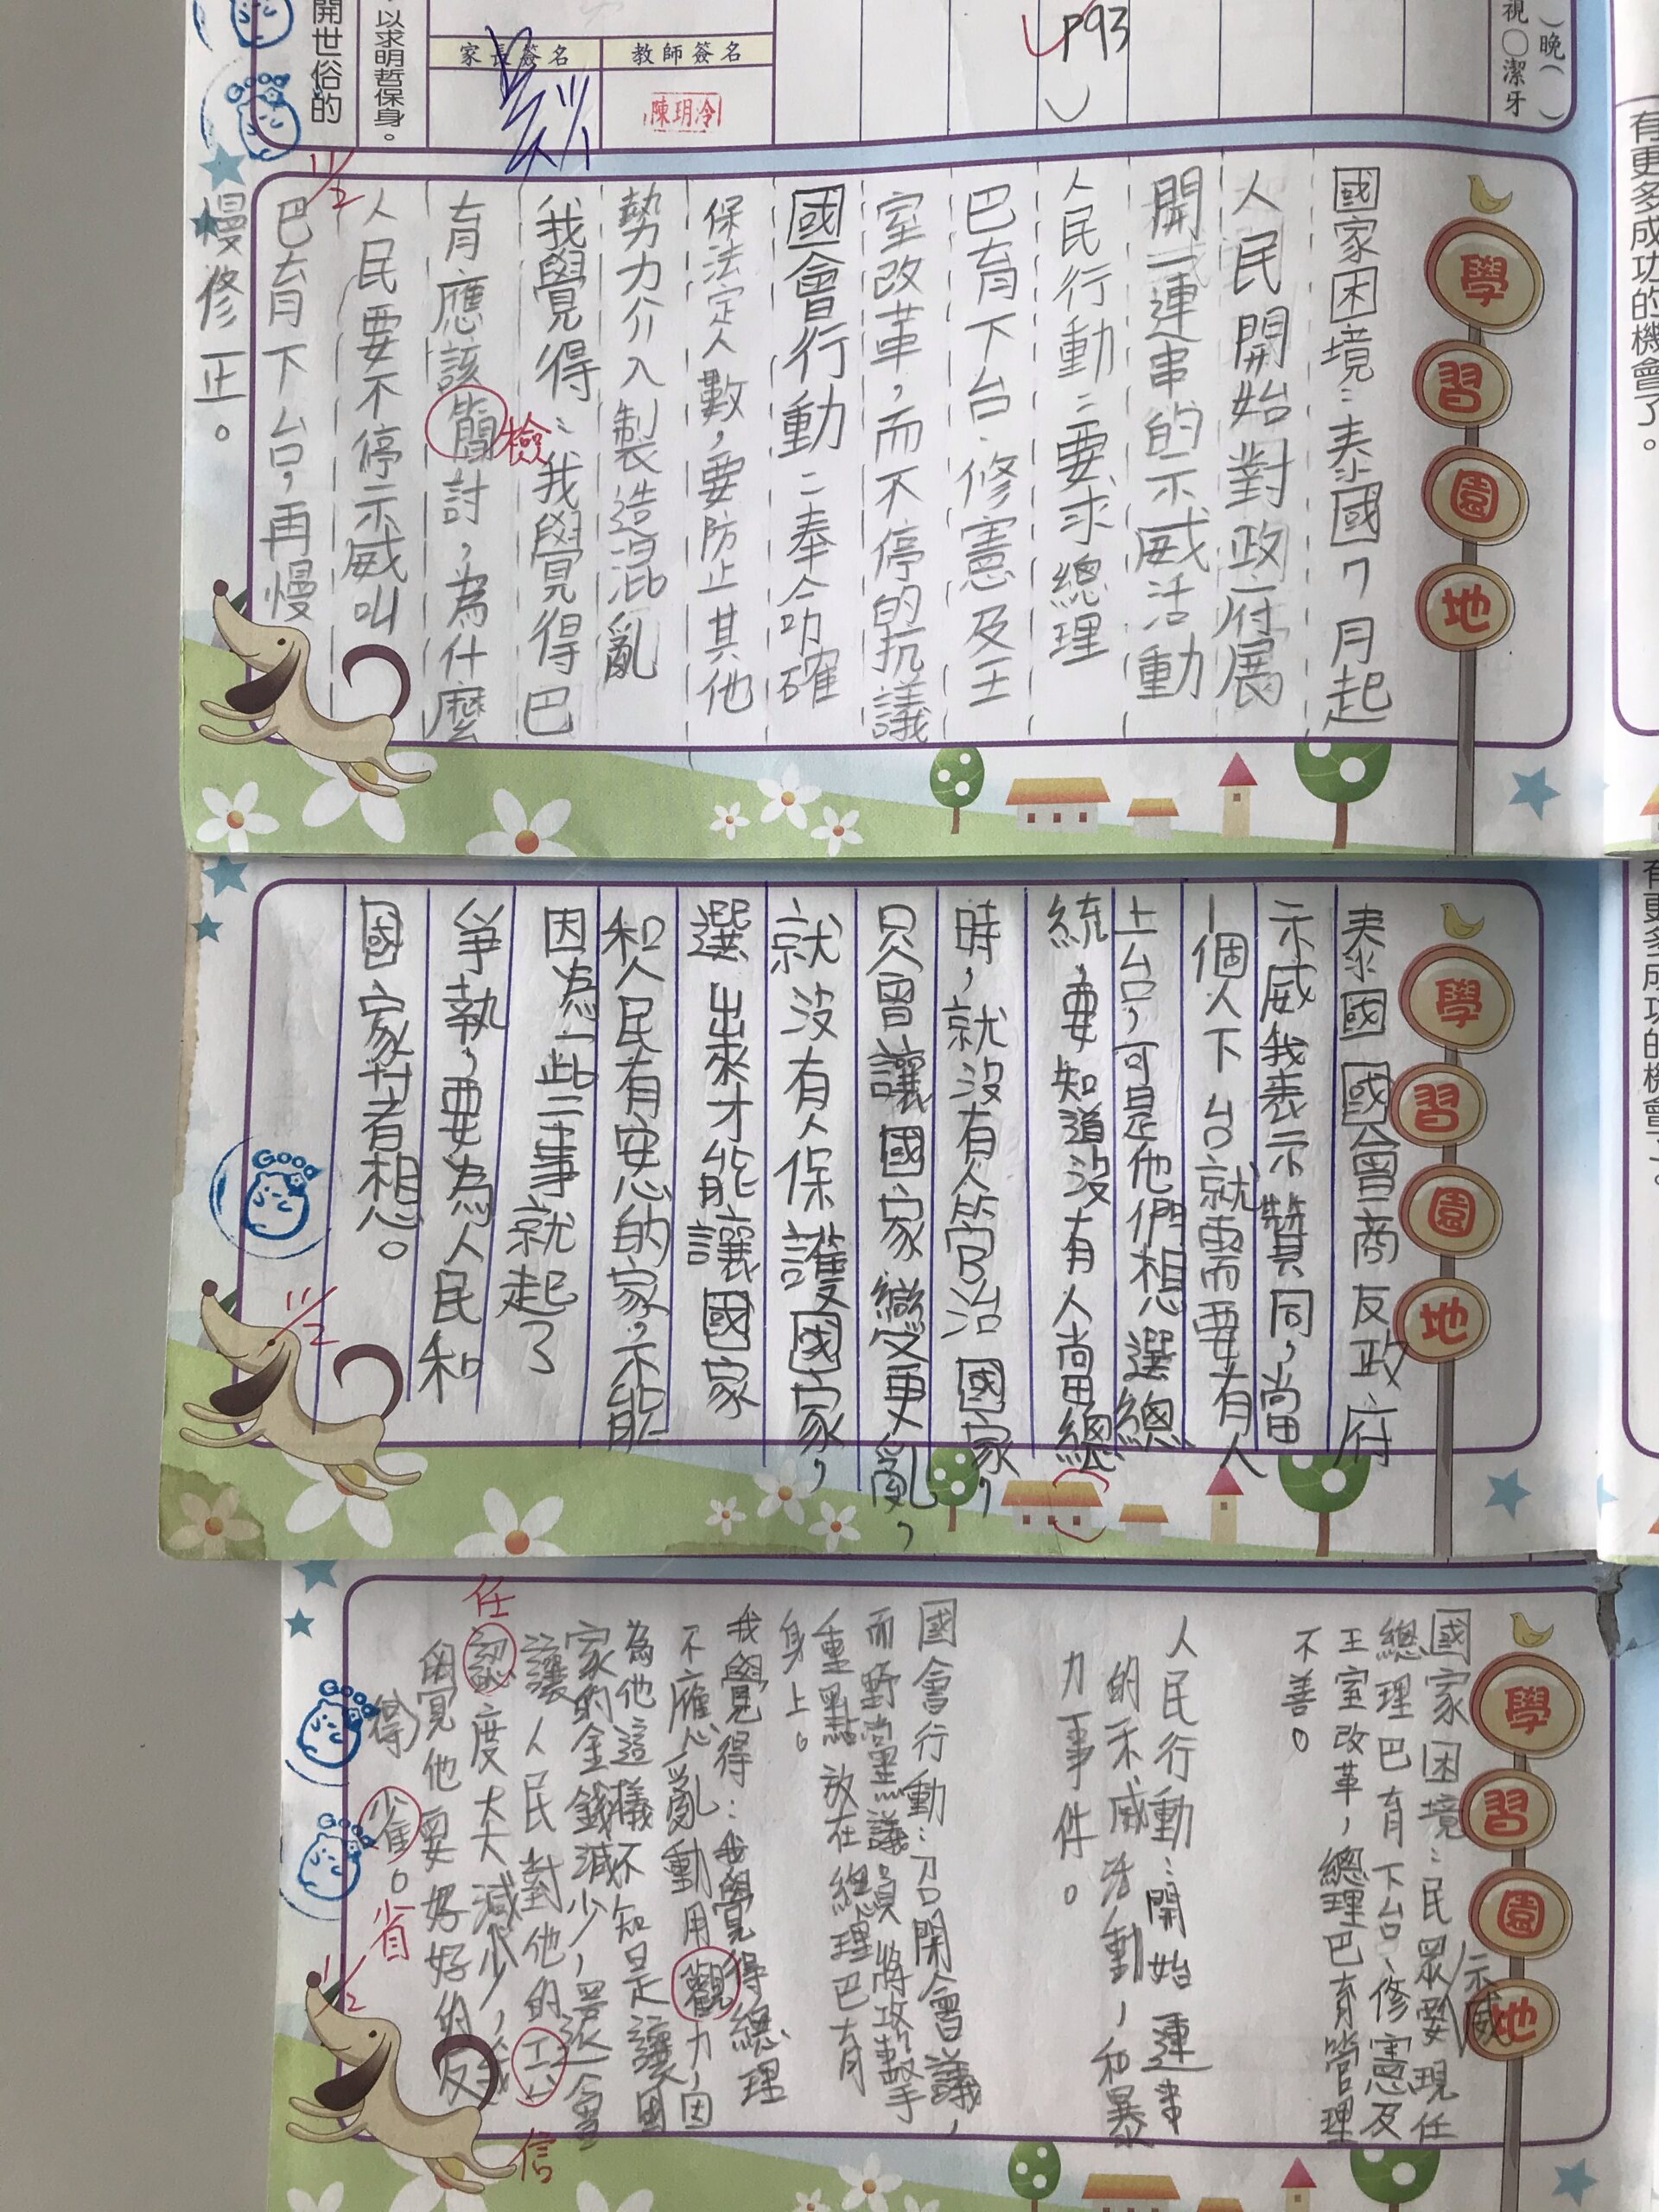 開世俗的
以求明哲保身。
家長簽名
教師簽名
陳玥冷
P93
視○潔牙
)晚(
有更多成功的機會了。
11/2
學習園地
國家困境:泰國7月起
人民開始對政府展
開一連串的示威活動
人民行動:要求總理
巴育下台、修憲及王
室改革,而不停的抗議
國會行動:奉命確
保法定人數,要防止其他
勢力介入製造混亂
我覺得:我覺得巴
育應該簡討,為什麼
檢
人民要不停示威叫
巴育下台,再慢
慢修正。
學習園地
泰國國會商反政府
示威我表示贊同,當
一個人下台就需要有人
上台,可是他們想選總
統,要知道沒有人當總
時,就沒有人管治國家,
只會讓國家變更亂,
就沒有人保護國家,
選出來才能讓國家
和人民有安息的家,不能
因為一些事就起了
爭執,要為人民和
國家著想。
Good
11/2
學習園地
示威
國家困境:民眾要現任
總理巴育下台、修憲及
王室改革,總理巴育管理
不善。
人民行動:開始連串
的示威活動,和暴
力事件。
國會行動:召開會議,
而野黨議員將攻擊
重點放在總理巴育
身上。
我覺得:我覺得總理
不應亂動用觀力,因
為他這樣不知是讓國
家的金錢減少,還會
讓人民對他的
信
任
認度大大減少,我
覺他要好好的反
省
Good
Good
11/2